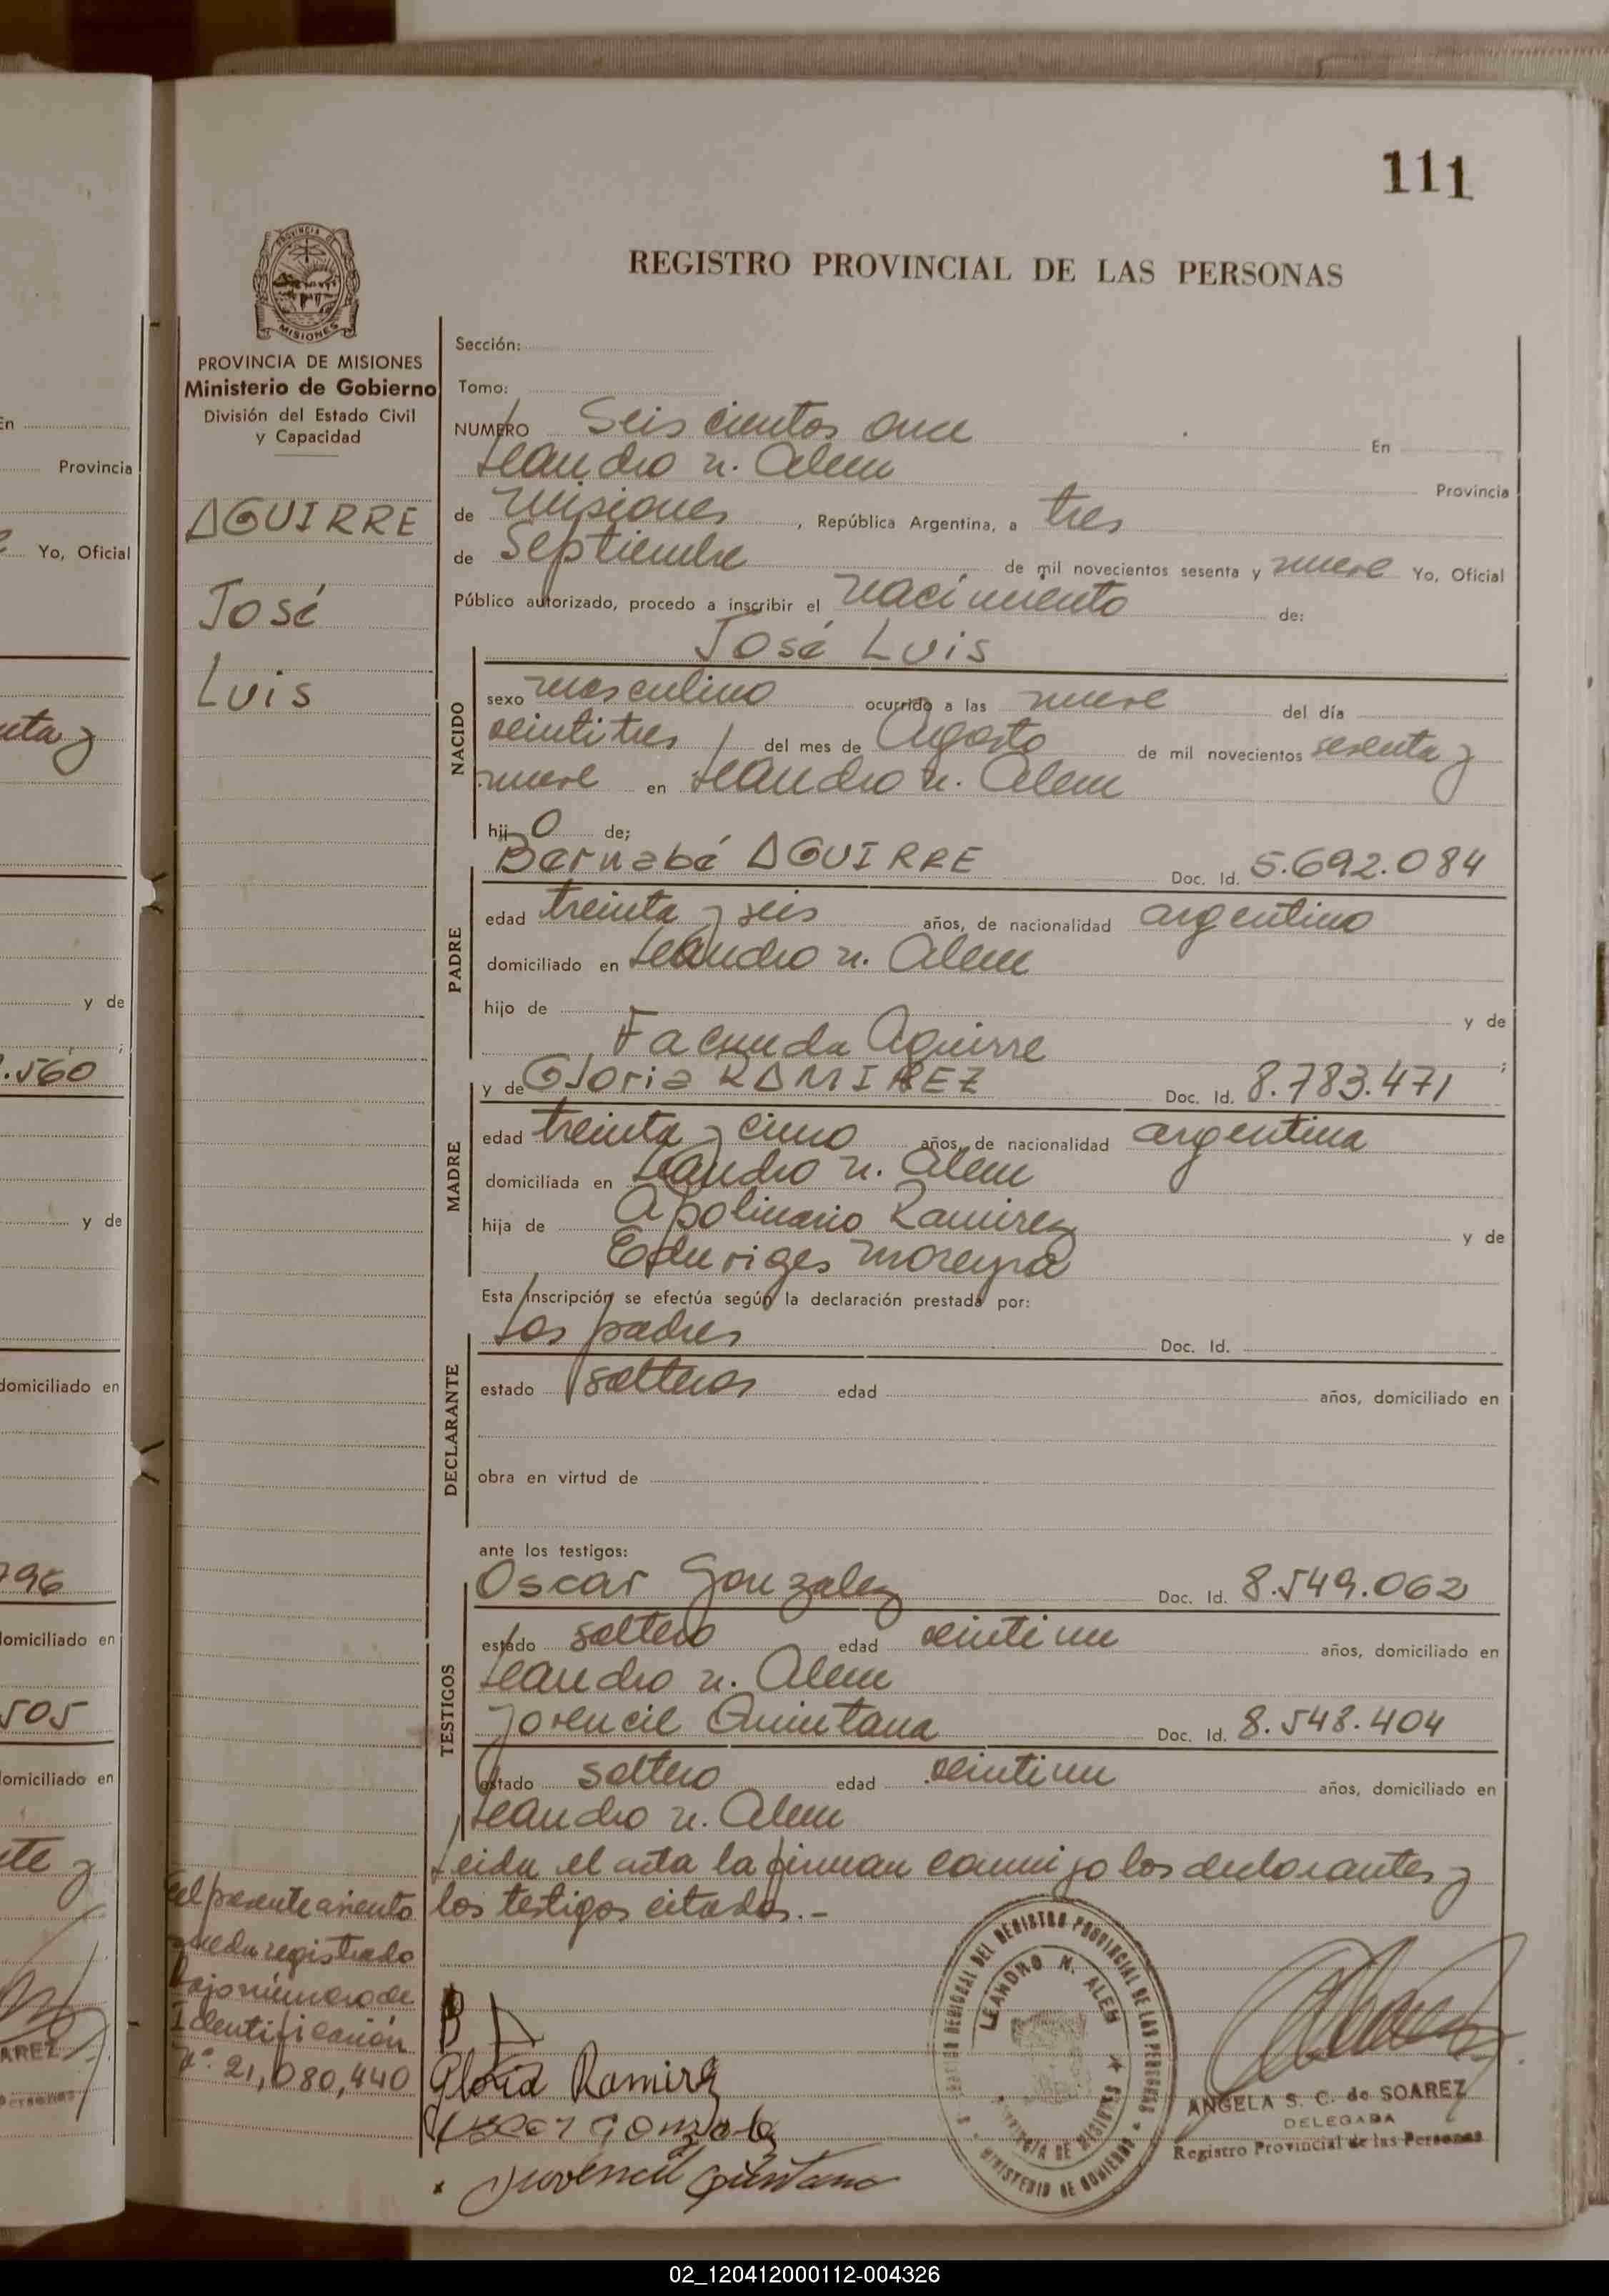 111
REGISTRO PROVINCIAL DE LAS PERSONAS
PROVINCIA DE MISIONES
Ministerio de Gobierno
División del Estado Civil
y Capacidad
AGUIRRE
José
Luis
Sección:
Tomo:
NUMERO Seiscientos once En
Leandro N. Alem Provincia
de Misiones, República Argentina, a tres
de Septiembre de mil novecientos sesenta y nueve Yo, Oficial
Público autorizado, procedo a inscribir el nacimiento de:
José Luis
NACIDO
sexo masculino ocurrido a las nueve del día
veintitres del mes de Agosto de mil novecientos sesenta y
nueve en Leandro N. Alem
hijo de;
Bernabé AGUIRRE Doc. Id. 5.692.084
PADRE
edad treinta y seis años, de nacionalidad argentino
domiciliado en Leandro N. Alem
hijo de y de
Facunda Aguirre ;
y de Gloria RAMIREZ Doc. Id. 8.783.471
MADRE
edad treinta y cinco años, de nacionalidad argentina
domiciliada en Leandro N. Alem
hija de Apolinario Ramirez y de
Eduviges Moreyra
Esta inscripción se efectúa según la declaración prestada por:
Los padres Doc. Id.
DECLARANTE
estado solteros edad años, domiciliado en
obra en virtud de
ante los testigos:
Oscar Gonzalez Doc. Id. 8.549.062
TESTIGOS
estado soltero edad veintiun años, domiciliado en
Leandro N. Alem
Jovencil Quintana Doc. Id. 8.548.404
estado soltero edad veintiun años, domiciliado en
Leandro N. Alem
Leida el acta la firman conmigo los declarantes y
los testigos citados.-
El presente asiento
queda registrado
bajo número de
Identificación
Nº 21,080,440
B A
Gloria Ramirez
Oscar Gonzalez
Juvencil Quintana
LEANDRO N. ALEM
PROVINCIA DE MISIONES
MINISTERIO DE GOBIERNO
ANGELA S. C. de SOAREZ
DELEGADA
Registro Provincial de las Personas
02_120412000112-004326